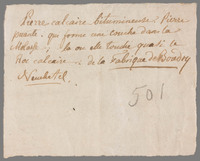 Pierre calcaire bitumineuse. Pierre
puante. qui forme une couche dans la
là ou elle touche quasi le
Roc calcaire. de la fabrique de Boudry
Neuchatel.
501